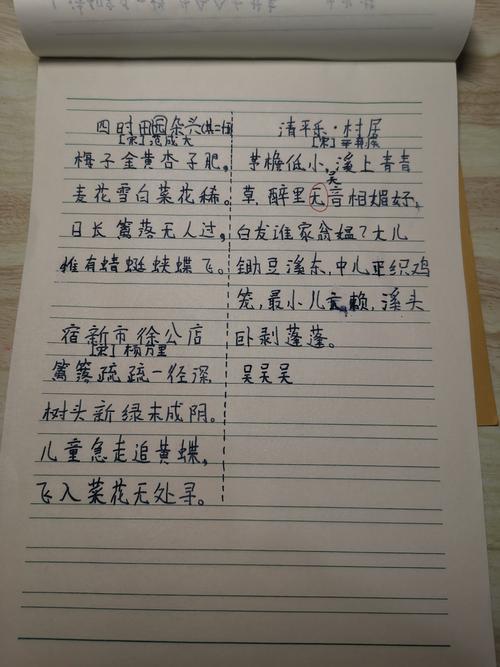 四时田园杂兴(其二十五)
[宋]范成大
梅子金黄杏子肥，
麦花雪白菜花稀。
日长篱落无人过，
惟有蜻蜓蛱蝶飞。
宿新市徐公店
[宋]杨万里
篱落疏疏一径深
树头新绿未成阴。
儿童急走追黄蝶，
飞入菜花无处寻。
清平乐·村居
[宋]辛弃疾
茅檐低小，溪上青青
吴
草，醉里无音相媚好，
白发谁家翁媪？大儿
锄豆溪东，中儿正织鸡
笼，最小儿亡赖，溪头
卧剥蓬蓬。
吴吴吴